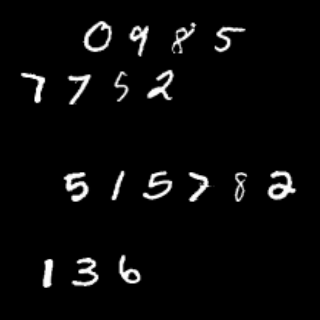 0985
7752
515782
136